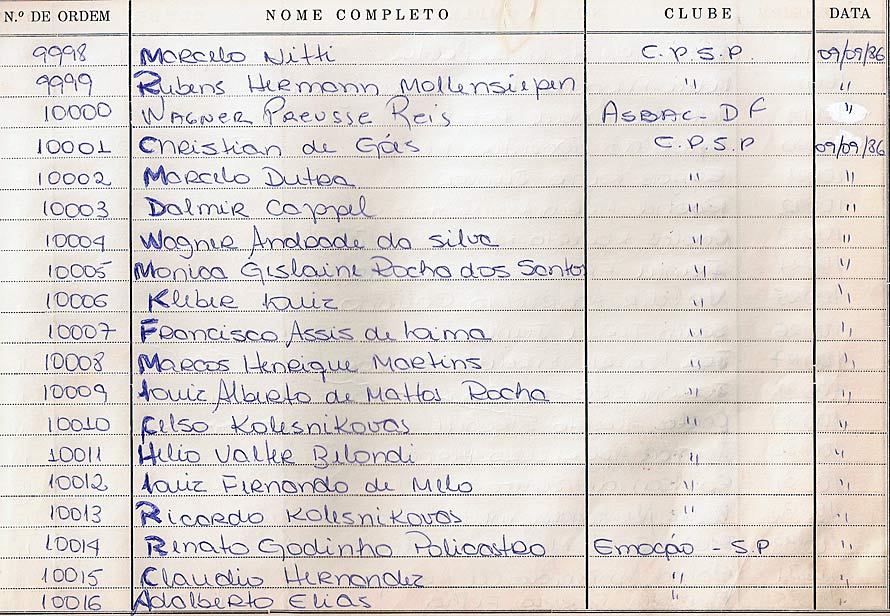 N.º DE ORDEM NOME COMPLETO CLUBE DATA
9998 Marcelo Nitti C.P.S.P. 09/09/86
9999 Rubens Hermann Mollensiepen " "
10000 Wagner Preusse Reis ASBAC - DF "
10001 Christian de Gás C.P.S.P 09/09/86
10002 Marcelo Dutra " "
10003 Dalmir Cappel " "
10004 Wagner Andrade da Silva " "
10005 Monica Gislaine Rocha dos Santos " "
10006 Kleber Luiz " "
10007 Francisco Assis de Lima " "
10008 Marcos Henrique Martins " "
10009 Luiz Alberto de Mattos Rocha " "
10010 Celso Kolesnikovas " "
10011 Helio Valter Belondi " "
10012 Luiz Fernando de Melo " "
10013 Ricardo Kolesnikovas " "
10014 Renato Godinho Policastro Emoção - S.P "
10015 Claudio Hernandez " "
10016 Adalberto Elias " "